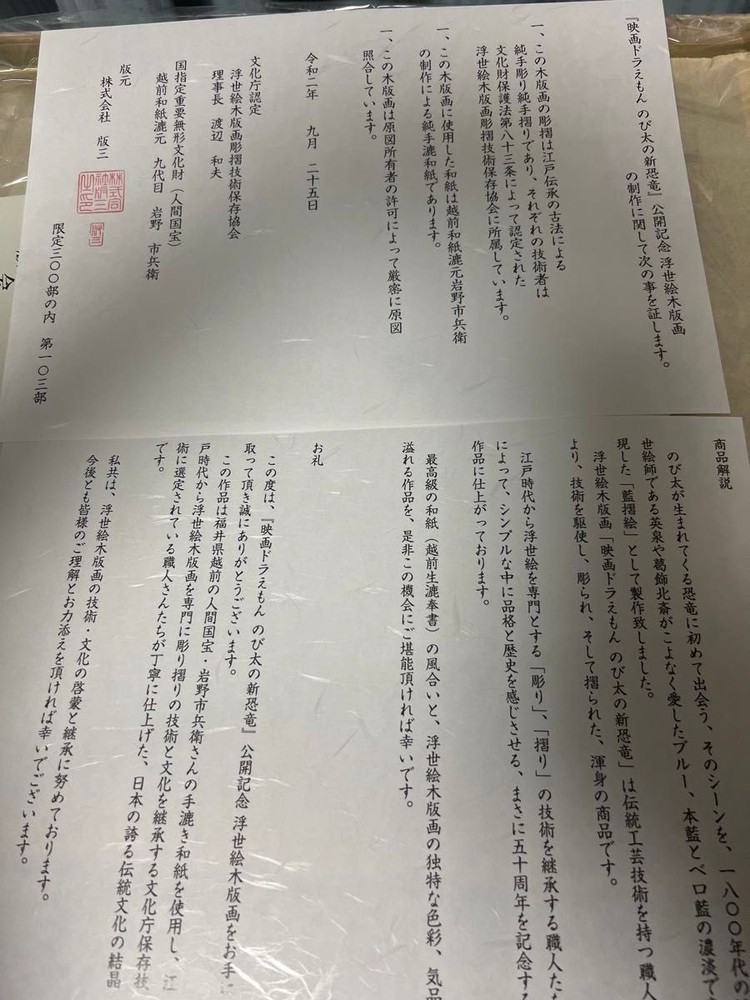 『映画ドラえもん のび太の新恐竜』公開記念 浮世絵木版画
の制作に関して次の事を証します。
一、この木版画の彫摺は江戸伝承の古法による
純手彫り純手摺りであり、それぞれの技術者は
文化財保護法第八十三条によって認定された
浮世絵木版画彫摺技術保存協会に所属しています。
一、この木版画に使用した和紙は越前和紙漉元岩野市兵衛
の制作による純手漉和紙であります。
一、この木版画は原図所有者の許可によって厳密に原図
照合しています。
令和二年 九月 二十五日
文化庁認定
浮世絵木版画彫摺技術保存協会
理事長 渡辺 和夫
国指定重要無形文化財(人間国宝)
越前和紙漉元 九代目 岩野 市兵衛
版元
株式会社 版三
限定三〇〇部の内 第一〇三部
商品解説
のび太が生まれてくる恐竜に初めて出会う、そのシーンを、一八〇〇年代の
世絵師である英泉や葛飾北斎がこよなく愛したブルー、本藍とベロ藍の濃淡で
現した「藍摺絵」として製作致しました。
浮世絵木版画「映画ドラえもん のび太の新恐竜」は伝統工芸技術を持つ職人
より、技術を駆使し、彫られ、そして摺られた、渾身の商品です。
江戸時代から浮世絵を専門とする「彫り」、「摺り」の技術を継承する職人た
によって、シンプルな中に品格と歴史を感じさせる、まさに五十周年を記念する
作品に仕上がっております。
最高級の和紙(越前生漉奉書)の風合いと、浮世絵木版画の独特な色彩、気品
溢れる作品を、是非この機会にご堪能頂ければ幸いです。
お礼
この度は、『映画ドラえもん のび太の新恐竜』公開記念 浮世絵木版画をお手に
取って頂き誠にありがとうございます。
この作品は福井県越前の人間国宝・岩野市兵衛さんの手漉き和紙を使用し、江
戸時代から浮世絵木版画を専門に彫り摺りの技術と文化を継承する文化庁保存技
術に選定されている職人さんたちが丁寧に仕上げた、日本の誇る伝統文化の結晶
です。
私共は、浮世絵木版画の技術・文化の啓蒙と継承に努めております。
今後とも皆様のご理解とお力添えを頂ければ幸いでございます。